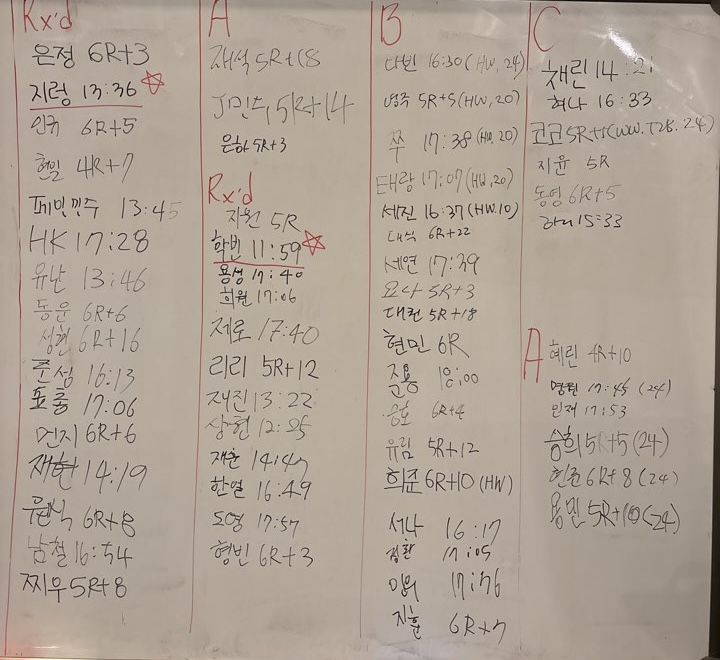 Rx'd
은정 6R+3
지렁 13:36
민규 6R+5
현일 4R+7
페인민수 13:45
HK 17:28
유난 13:46
동윤 6R+6
성현 6R+16
준성 16:13
표홍 17:06
먼지 6R+6
재현 14:19
원식 6R+8
남철 16:54
찌우 5R+8
A
재석 5R+18
J민수 5R+14
은하 5R+3
Rx'd
지원 5R
학빈 11:59
용성 17:40
희원 17:06
제로 17:40
리리 5R+12
재진 13:22
상현 12:25
재훈 14:47
한얼 16:49
도영 17:57
형빈 6R+3
B
다빈 16:30 (HW, 24)
명주 5R+5 (HW, 20)
쭈 17:38 (HW, 20)
태랑 17:07 (HW, 20)
세진 16:37 (HW. 10)
대식 6R+22
세연 17:39
요나 5R+3
대건 5R+18
현민 6R
준용 18:00
승호 6R+4
유림 5R+12
희준 6R+10 (HW)
서나 16:17
17:05
17:76
지훈 6R+7
C
채린 14:21
혀나 16:33
코코 5R+
지윤 5R
동영 6R+5
라니 15:33
A
혜린 4R+10
17:45 (24)
민재 17:53
승희 5R+5 (24)
헌준 6R+8 (24)
용민 5R+10 (24)